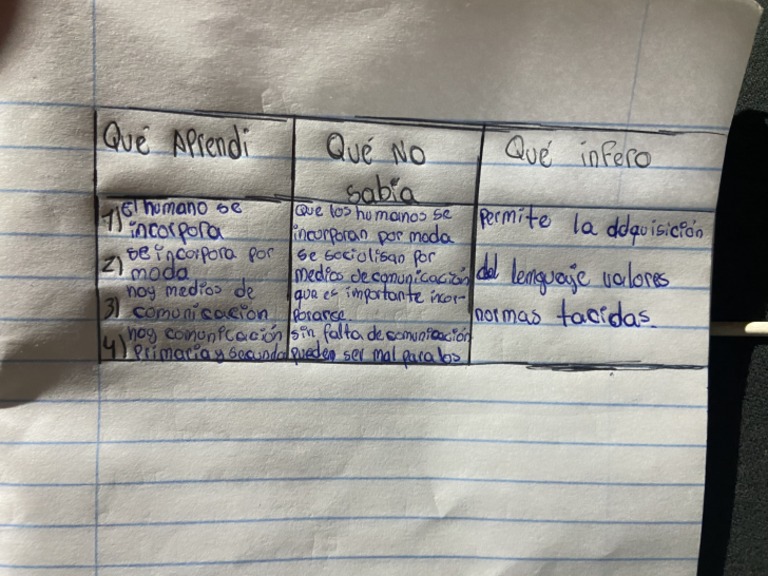 Qué Aprendi
Qué No
sabía
Qué infero
1) El humano se
incorpora
2) se incorpora por
moda
3) hoy medios de
comunicación
4) hoy comunicación
primaria y secunda
Que los humanos se
incorporan por moda
se sociolisan por
medios de comunicación
que es importante incor-
porarse.
sin falta de comunicación
pueden ser mal para los
Permite la ddquisición
del lenguaje valores
normas tacidas.